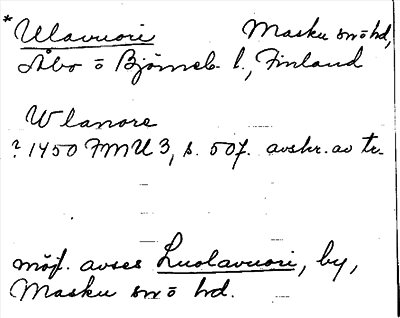 *Ulavuori Masku sn o hd,
Åbo o Björneb. l., Finland
Wlanore
? 1450 FMU 3, s. 50f. avskr. av tr.
möjl. avses Luolavuori, by,
Masku sn o hd.